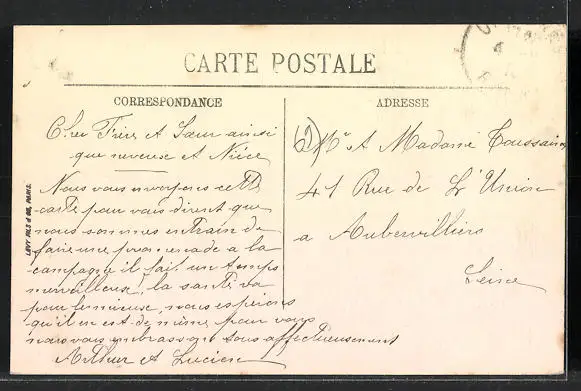 CARTE POSTALE
CORRESPONDANCE
ADRESSE
Cher Frère et Sœur ainsi
que neveuse et Nièce
Nous vous envoyons cette
carte pour vous dirent que
nous sommes entrain de
faire une promenade a la
campagne il fait un temps
merveilleux la santé va
pour le mieux, nous espérons
qu'il en est de même pour vous
nous vous embrassons tous affectueusement
Arthur et Lucien
Mr et Madame Toussaint
41 Rue de L'Union
a Aubervilliers
Seine
LEVY FILS & CIE, PARIS.